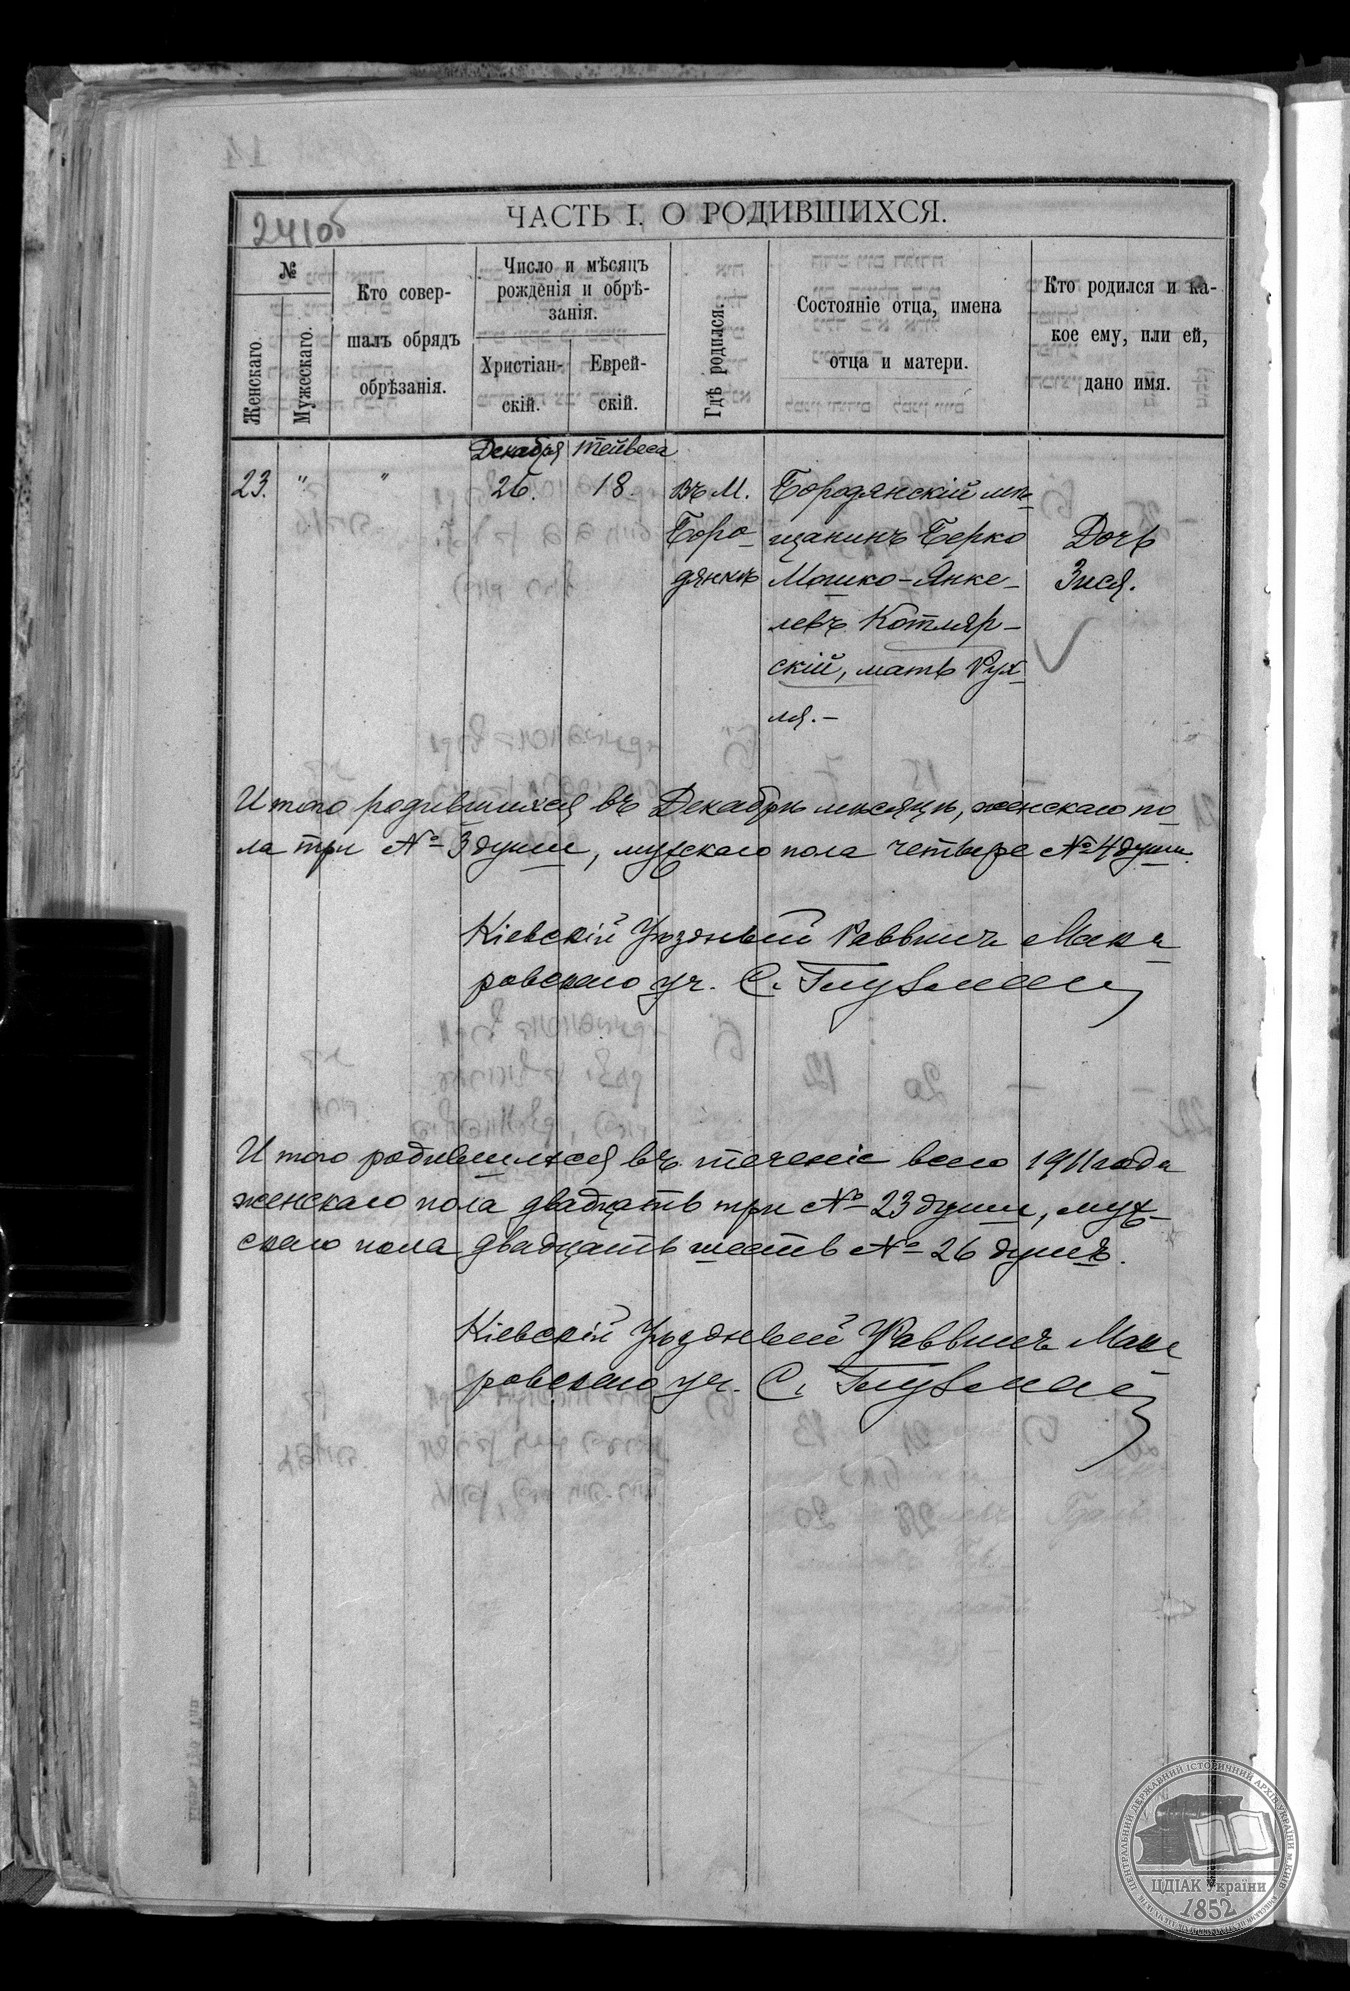 241об
ЧАСТЬ I. О РОДИВШИХСЯ.
№
Женскаго.
Мужескаго.
Кто совер-
шалъ обрядъ
обрѣзанія.
Число и мѣсяцъ
рожденія и обрѣ-
занія.
Христіан-
скій.
Еврей-
скій.
Гдѣ родился.
Состояніе отца, имена
отца и матери.
Кто родился и ка-
кое ему, или ей,
дано имя.
Декабря Тейвеса
23. " " 26. 18. въ М. Бородянскій мѣ-
Боро- щанинъ Берко Дочь
дянкѣ Мошко-Янке- Зися.
левъ Котляр-
скій, мать Рух-
ля.-
Итого родившихся въ Декабрѣ мѣсяцѣ, женскаго по-
ла три № 3 души, мужскаго пола четыре № 4 души.
Кіевскій Уѣздный Раввинъ Мака-
ровскаго уч. С. Глузман
Итого родившихся въ теченіе всего 1911 года
женскаго пола двадцать три № 23 души, муж-
скаго пола двадцать шесть № 26 душъ.
Кіевскій Уѣздный Раввинъ Мака-
ровскаго уч. С. Глузман
ЦЕНТРАЛЬНИЙ ДЕРЖАВНИЙ ІСТОРИЧНИЙ АРХІВ УКРАЇНИ, М. КИЇВ
ЦДІАК України
1852